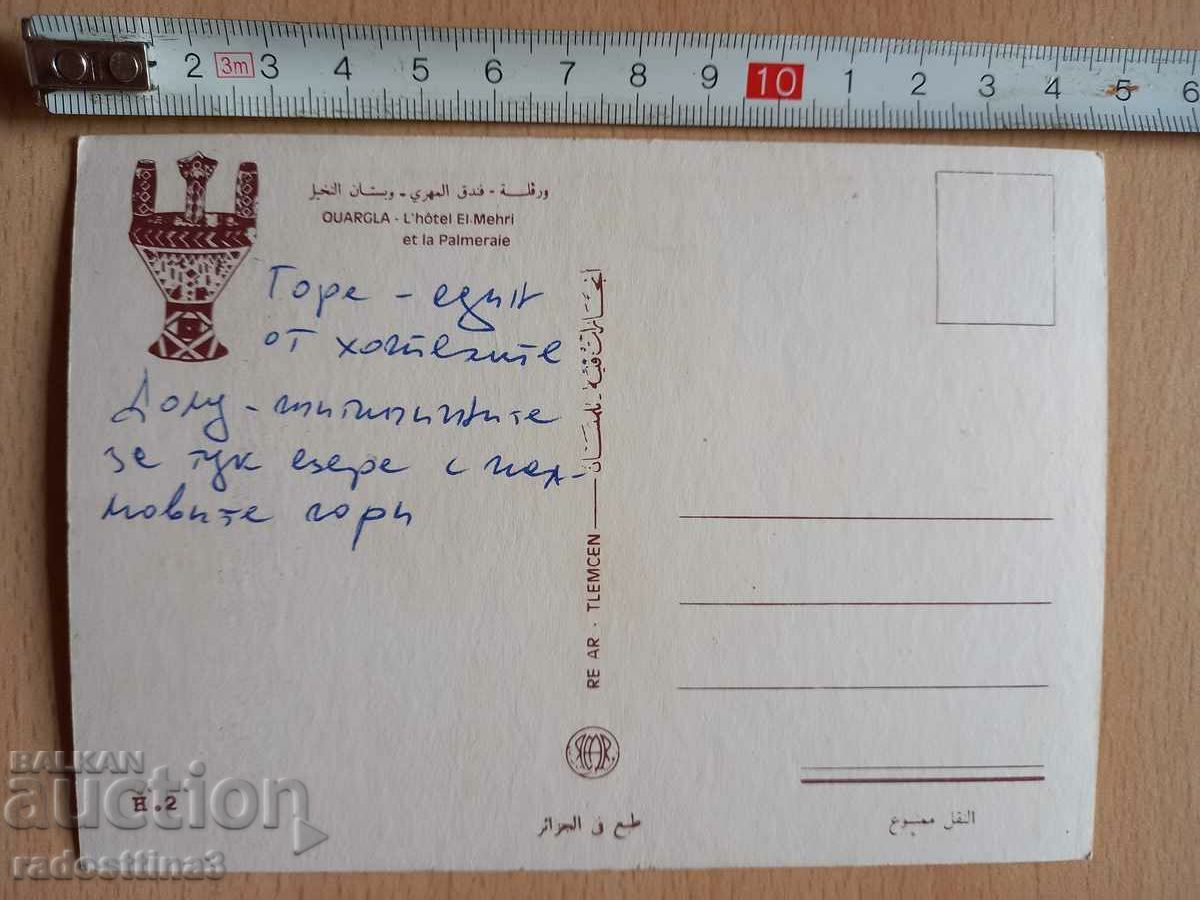 2 3m 3 4 5 6 7 8 9 10 1 2 3 4 5 6
ورقلة - فندق المهري - وبستان النخيل
OUARGLA - L'hôtel El-Mehri
et la Palmeraie
Горе - един
от хотелите
Долу - типичните
за тук езера с пал-
мовите гори
RE AR · TLEMCEN
REAR
H.2
طبع في الجزائر
النقل ممنوع
BALKAN
auction
radosttina3